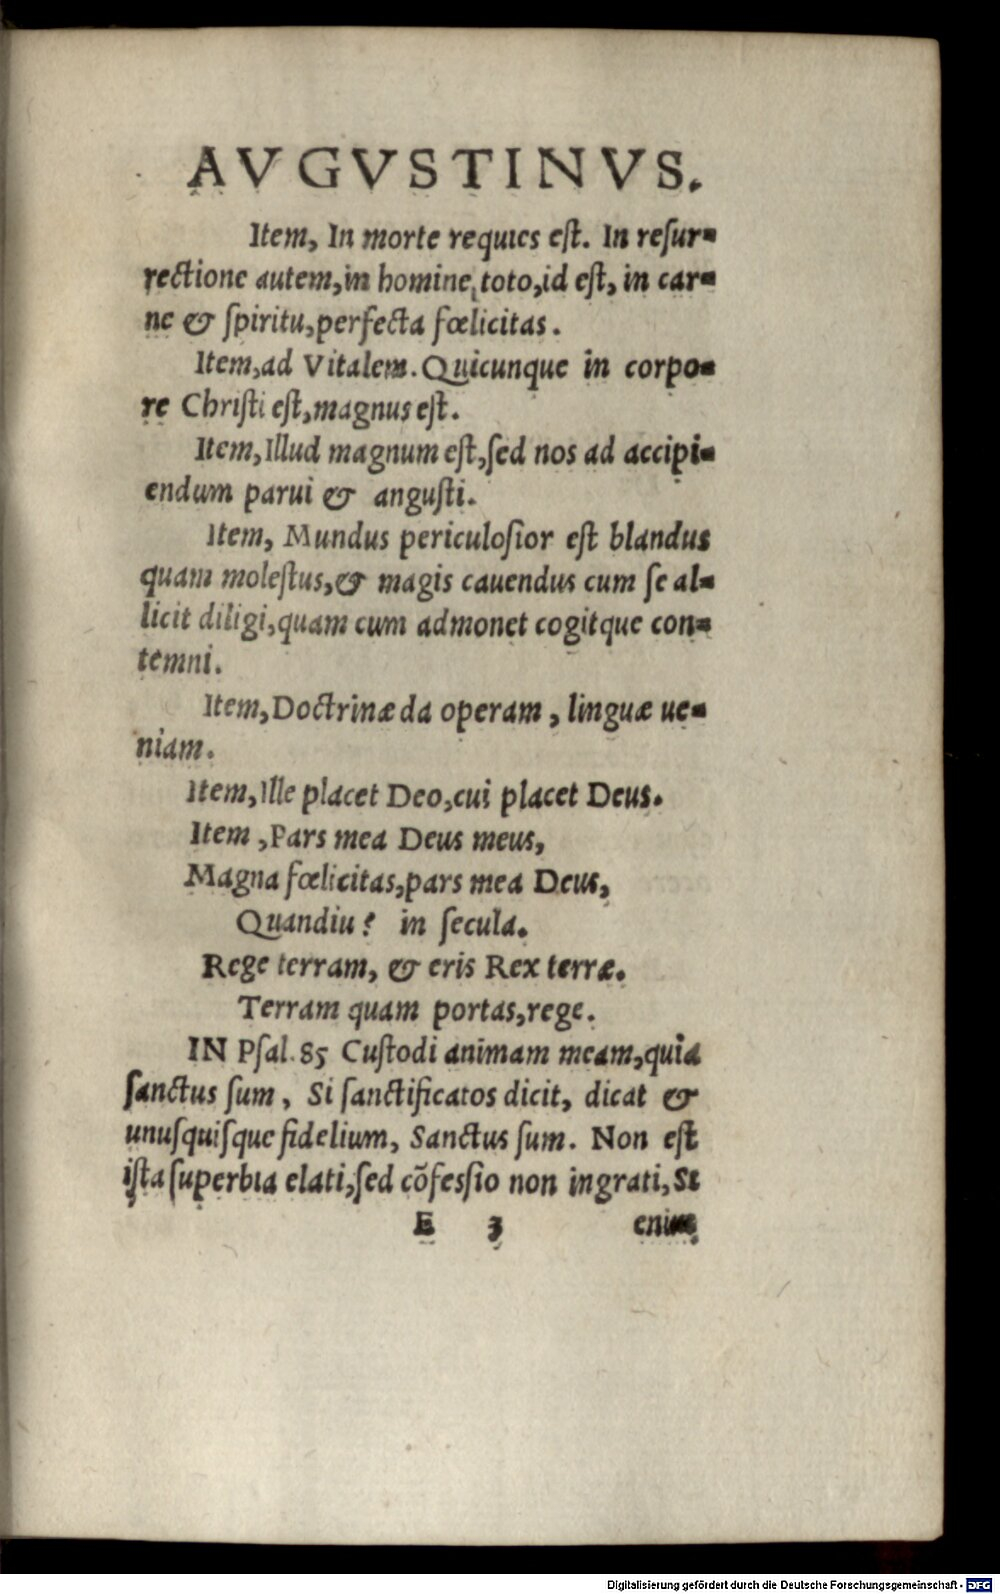 AVGVSTINVS.
Item, In morte requies est. In resur-
rectione autem, in homine toto, id est, in car-
ne & spiritu, perfecta fœlicitas.
Item, ad Vitalem. Quicunque in corpo-
re Christi est, magnus est.
Item, Illud magnum est, sed nos ad accipi-
endum parui & angusti.
Item, Mundus periculosior est blandus
quam molestus, & magis cauendus cum se al-
licit diligi, quam cum admonet cogitque con-
temni.
Item, Doctrinæ da operam, linguæ ue-
niam.
Item, Ille placet Deo, cui placet Deus.
Item, Pars mea Deus meus,
Magna fœlicitas, pars mea Deus,
Quandiu? in secula.
Rege terram, & eris Rex terræ.
Terram quam portas, rege.
IN Psal. 85 Custodi animam meam, quia
sanctus sum, Si sanctificatos dicit, dicat &
unusquisque fidelium, Sanctus sum. Non est
ista superbia elati, sed cõfessio non ingrati, Si
E 3 enim
Digitalisierung gefördert durch die Deutsche Forschungsgemeinschaft - DFG